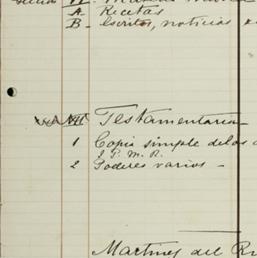 A Recetas
B Escritos, noticias
VII Testamentaria
1 Copia simple de los
J. P. M. R.
2 Poderes varios
Martinez del R